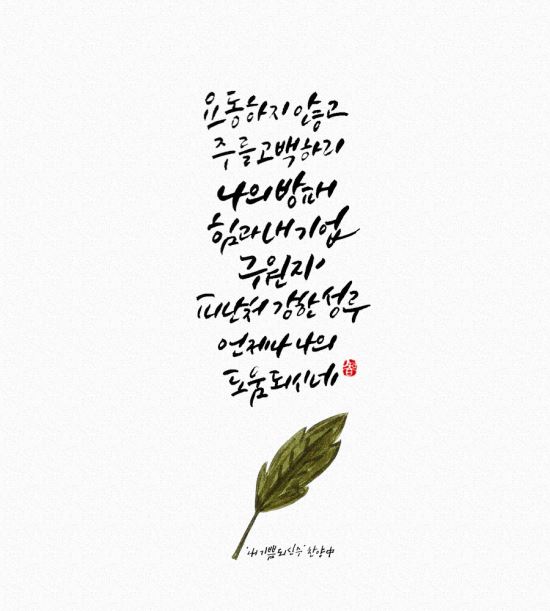 요동하지 않고
주를 고백하리
나의 방패
힘과 내 기업
구원자
피난처 강한 성루
언제나 나의
도움 되시네
'내 기쁨 되신 주' 찬양中